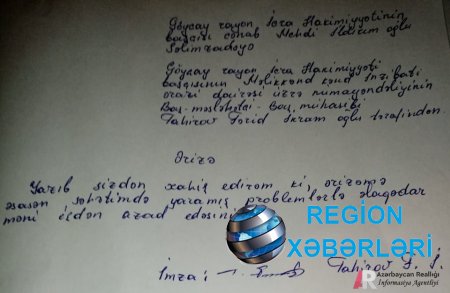 Göyçay rayon İcra Hakimiyyətinin
başçısı cənab Mehdi İldırım oğlu
Səlimzadəyə
Göyçay rayon İcra Hakimiyyəti
başçısının Məlikkənd kənd İnzibati
ərazi dairəsi üzrə nümayəndəliyinin
Baş məsləhətçi - Baş mühasibi
Tahirov Fərid İkram oğlu tərəfindən.
Ərizə
Yazıb sizdən xahiş edirəm ki ərizəmə
əsasən səhətimdə yaranmış problemlərlə əlaqədar
məni işdən azad edəsiniz
REGİON
XƏBƏRLƏRİ
İmza: Tahirov F. İ.
Azərbaycan Reallığı
İnformasiya Agentliyi